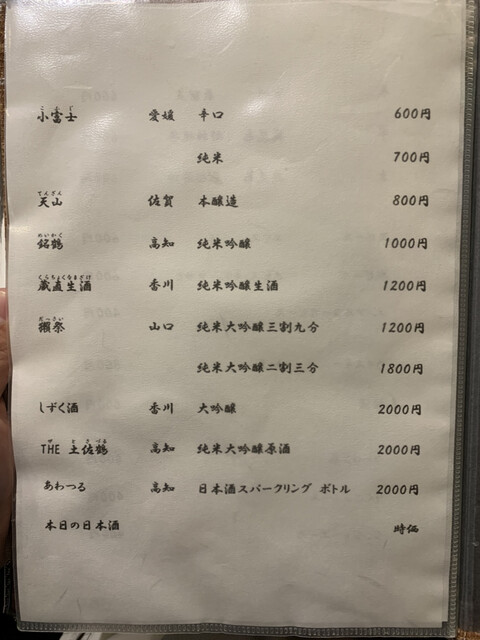 こふじ
小富士 愛媛 辛口 600円
純米 700円
てんざん
天山 佐賀 本醸造 800円
めいかく
銘鶴 高知 純米吟醸 1000円
くらちょくなまざけ
蔵直生酒 香川 純米吟醸生酒 1200円
だっさい
獺祭 山口 純米大吟醸三割九分 1200円
純米大吟醸二割三分 1800円
しずく酒 香川 大吟醸 2000円
ザ とさづる
THE 土佐鶴 高知 純米大吟醸原酒 2000円
あわつる 高知 日本酒スパークリング ボトル 2000円
本日の日本酒 時価